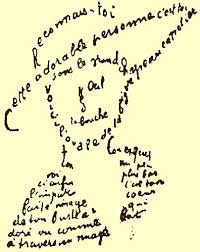 Reconnais-toi
Cette adorable personne c'est toi
sous le grand chapeau canotier
Oeil
la bouche
Voici l'ovale de ta figure
Ton
Cou exquis
voi
ci enfin
l'impar
faite image
de ton buste a
doré vu comme
à travers un nuage
un peu
plus bas
c'est ton
coeur
qui
bat